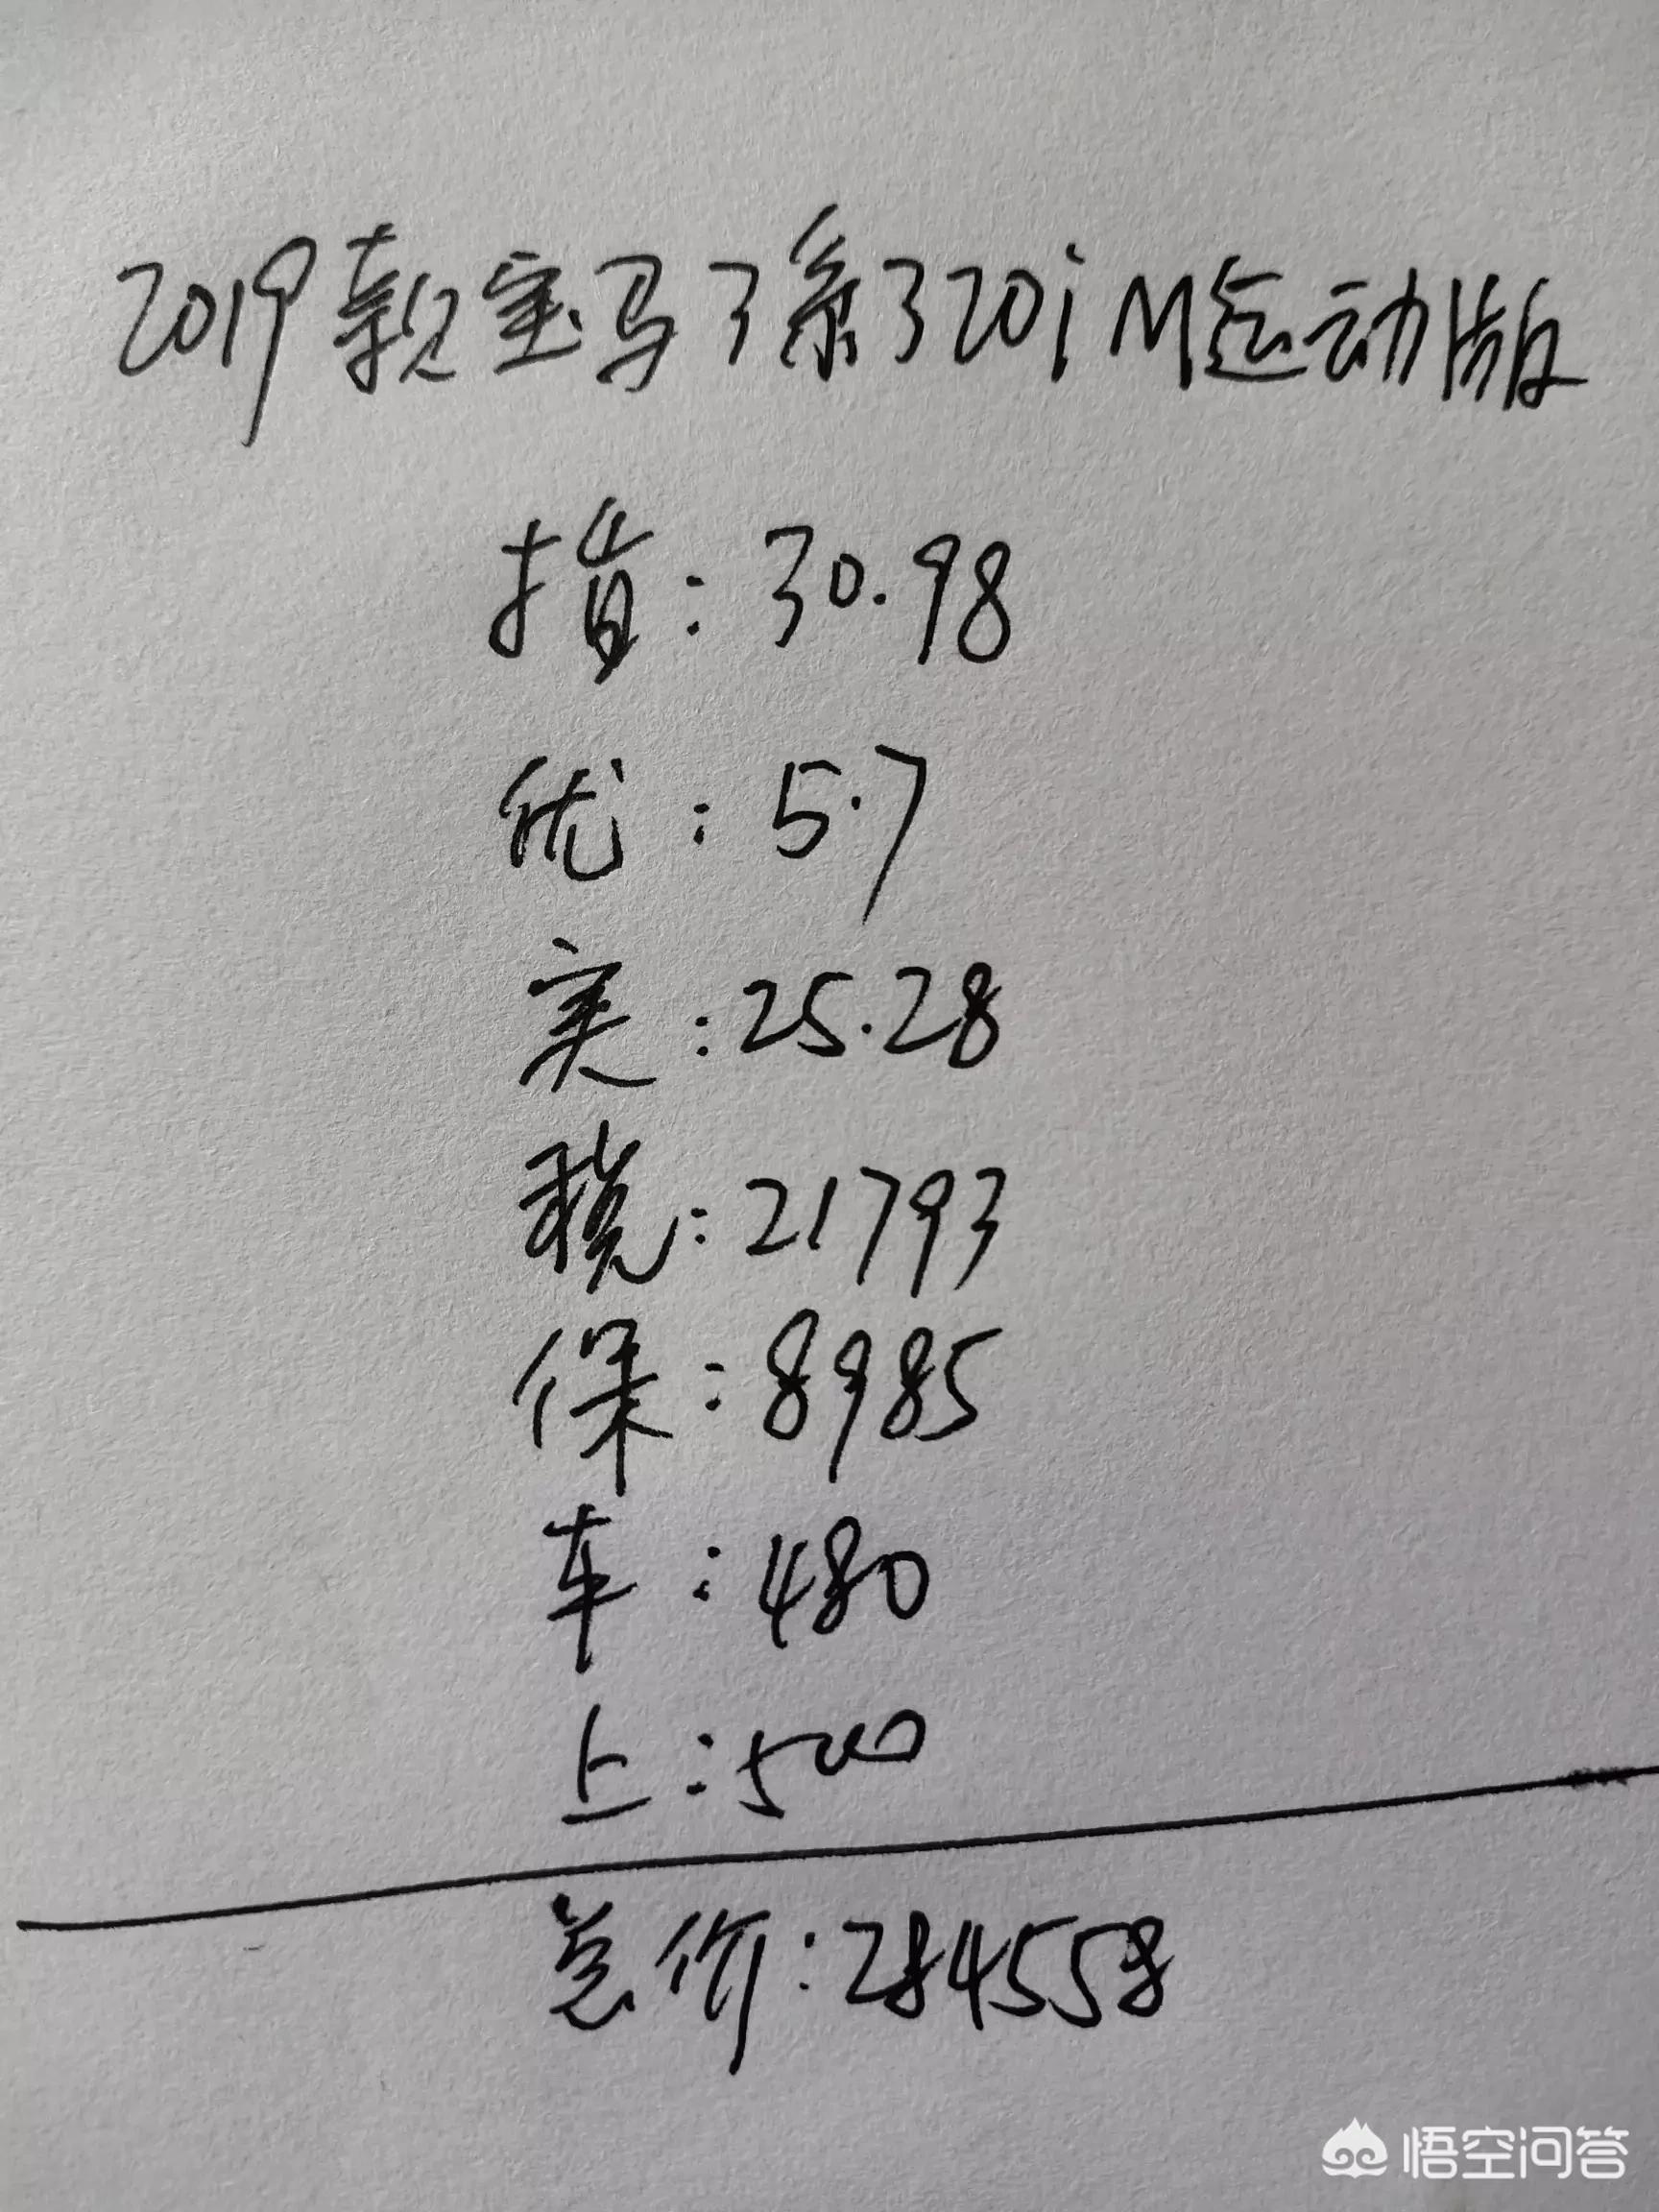 2019款宝马3系320i M运动版
指：30.98
优：5.7
实：25.28
税：21793
保：8985
车：480
上：500
总价：284558
悟空问答